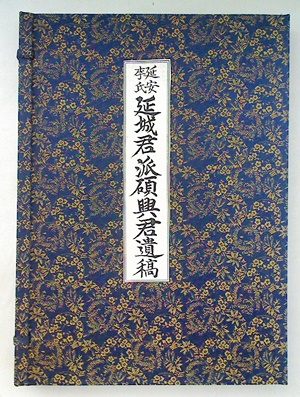 延安李氏
延城君派碩興君遺稿